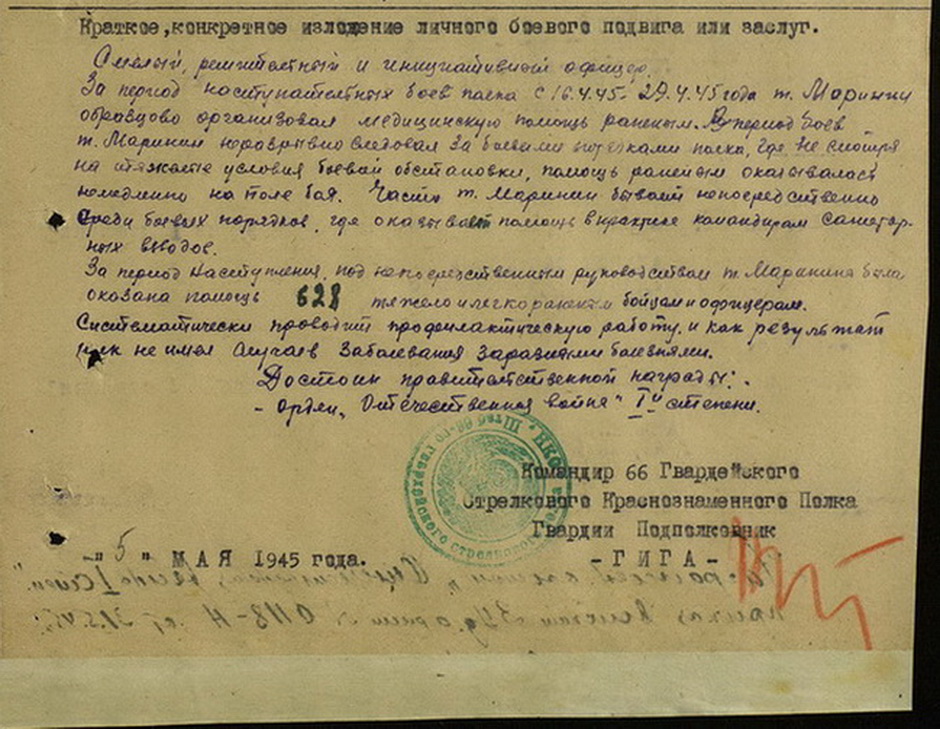 Краткое,конкретное изложение личного боевого подвига или заслуг.
Смелый, решительный и инициативный офицер.
За период наступательных боев полка с 16.4.45- 29.4.45 года т. Маринин
образцово организовал медицинскую помощь раненым. В период боев
т. Маринин неразрывно следовал за боевыми порядками полка, где не смотря
на тяжелые условия боевой обстановки, помощь раненым оказывалась
немедленно на поле боя. Часто т. Маринин бывает непосредственно
среди боевых порядков, где оказывает помощь командирам санитар-
ных взводов.
За период наступления, под непосредственным руководством т. Маринина была
оказана помощь 628 тяжело и легко раненым бойцам и офицерам.
Систематически проводит профилактическую работу, и как результат
полк не имел случаев заболевания заразными болезнями.
Достоин правительственной награды:
- Орден "Отечественная война" I й степени.
Командир 66 Гвардейского
Стрелкового Краснознаменного Полка
Гвардии Подполковник
-ГИГА-
"5" МАЯ 1945 года.